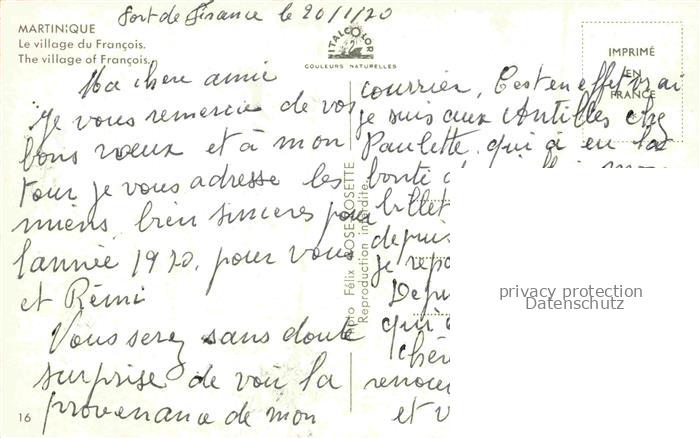 Fort de France le 20/1/70
MARTINIQUE
Le village du François.
The village of François.
ITALCOLOR
COULEURS NATURELLES
IMPRIMÉ
EN
FRANCE
Ma chere amie
Je vous remercie de vos
bons vœux et à mon
tour je vous adresse les
miens bien sinceres pour
l'année 1970. pour vous
et Rémi
Vous serez sans doute
surprise de voir la
provenance de mon
16
Photo Félix ROSE-ROSETTE
Reproduction interdite
courrier, C'est en effet vrai
je suis aux Antilles chez
Paulette, qui a eu la
bonté
billet
depuis
je
Depu
qu'
chér
et v
privacy protection
Datenschutz